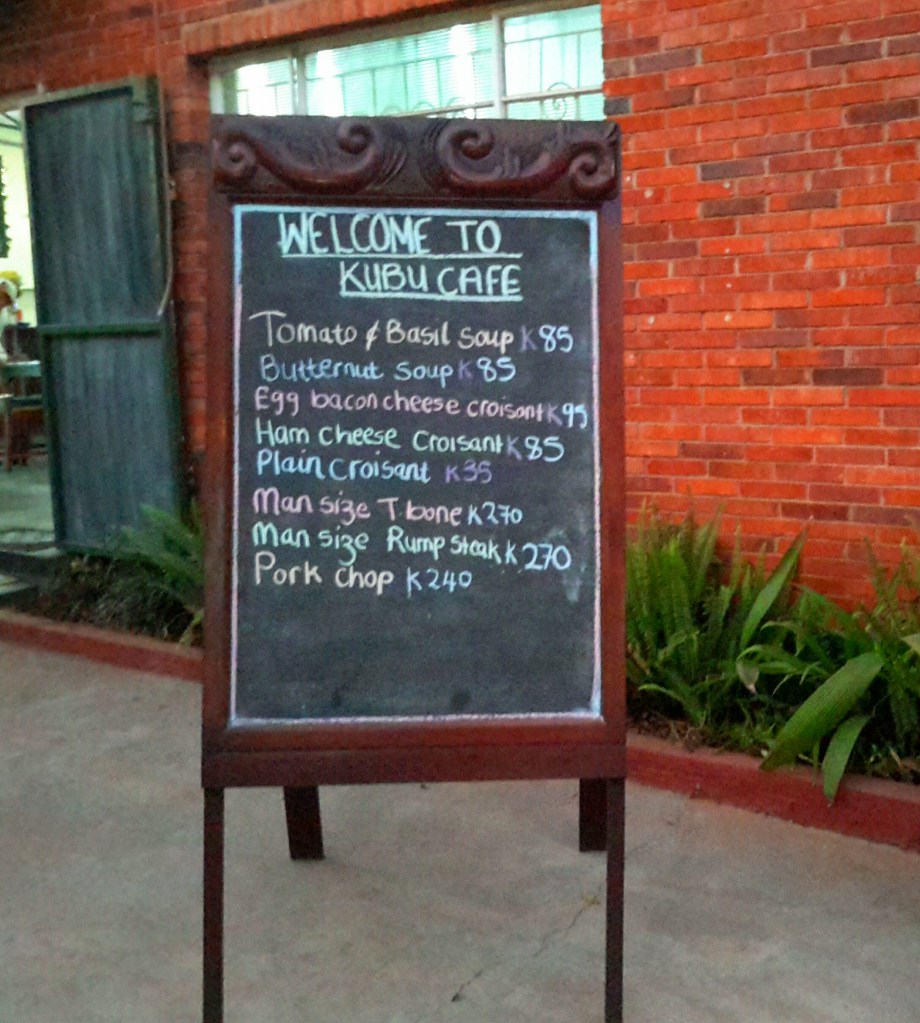 WELCOME TO
KUBU CAFE
Tomato & Basil soup K85
Butternut soup K85
Egg bacon cheese croisant K95
Ham cheese croisant K85
Plain croisant K35
Man size T.bone K270
Man size Rump steak K270
Pork chop K240